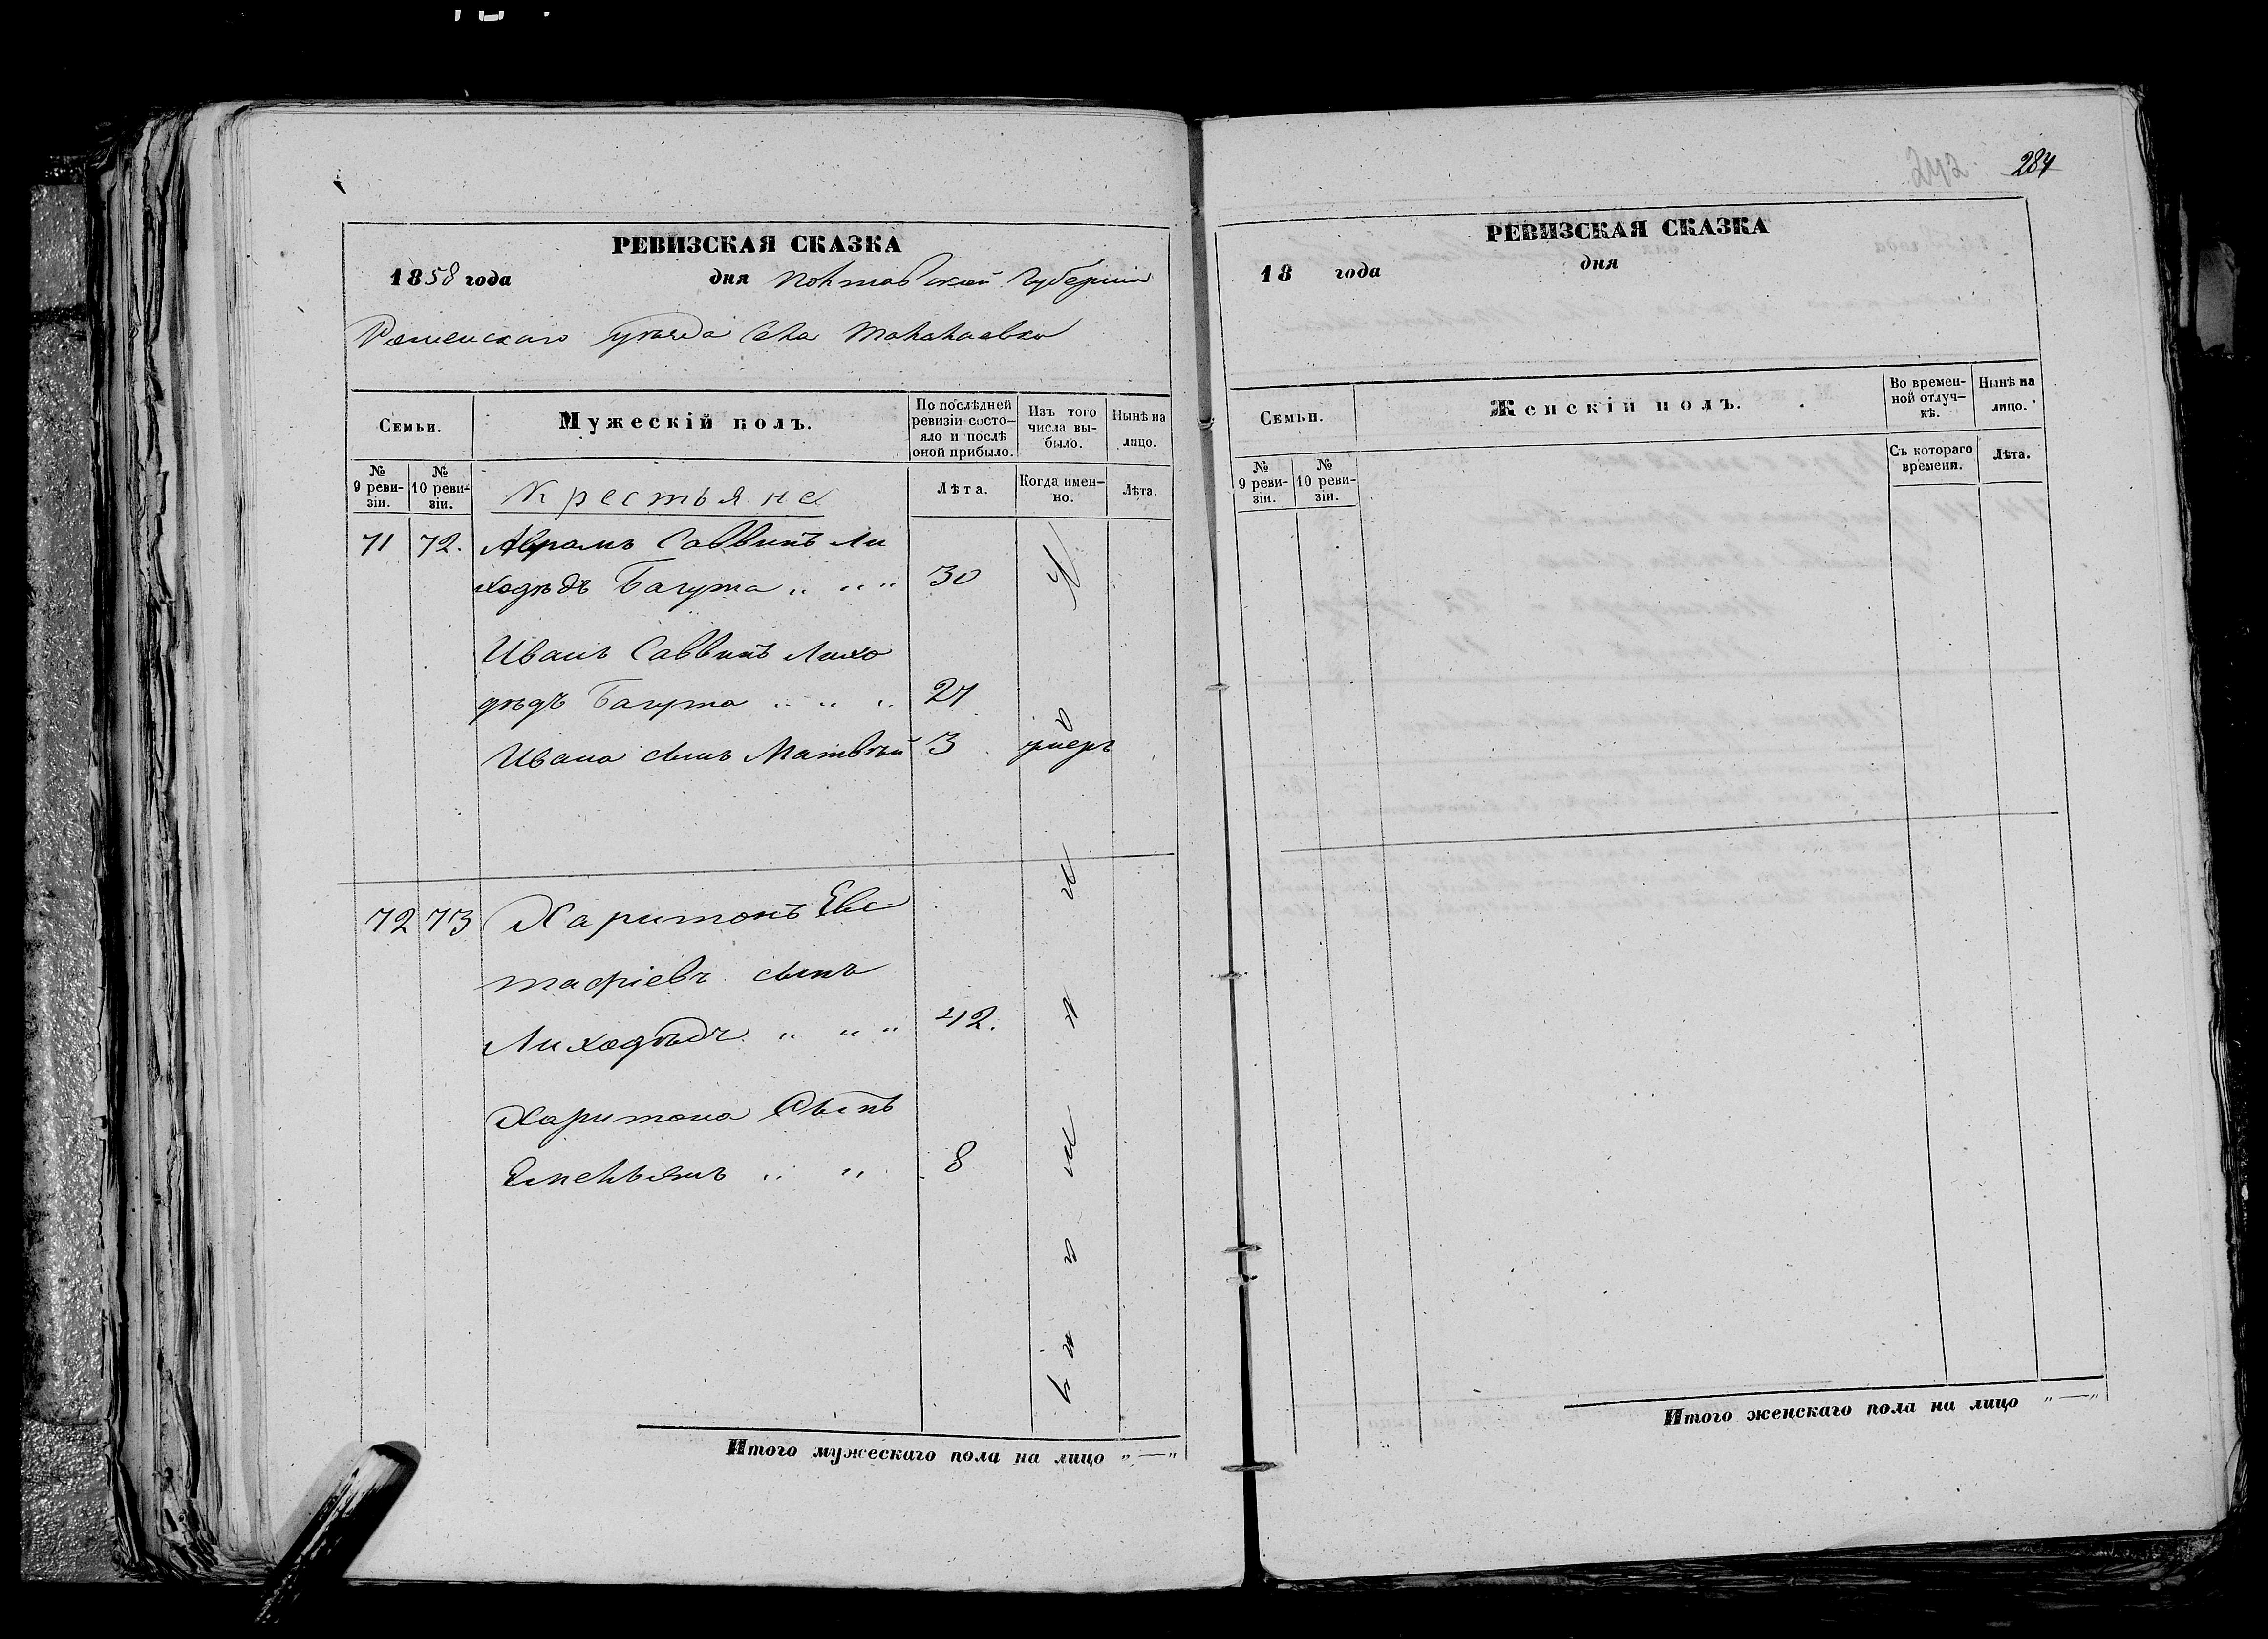 РЕВИЗСКАЯ СКАЗКА
1858 года дня Полтавской Губерніи
Роменскаго уѣзда села Талалаевки
Семьи.
Мужескій полъ.
По послѣдней ревизіи состо-
яло и послѣ
оной прибыло.
Изъ того
числа вы-
было.
Нынѣ на
лицо.
№
9 реви-
зіи.
№
10 реви-
зіи.
Крестьяне
Лѣта.
Когда имен-
но.
Лѣта.
71 72. Аврамъ Саввинъ Ли
ходѣдъ Багута „ „ „ 30
Иванъ Саввинъ Лихо
дѣдъ Багута „ „ „ 27
Ивана сынъ Матвѣй 3 умеръ
72 73 Харитонъ Евс
тафіевъ сынъ
Лиходѣдъ „ „ „ 42.
Харитона Сынъ
Емельянъ „ „ 8
Итого мужескаго пола на лицо „—"
284
РЕВИЗСКАЯ СКАЗКА
18 года дня
Семьи.
Женскій полъ.
Во времен-
ной отлуч-
кѣ.
Нынѣ на
лицо.
№
9 реви-
зіи.
№
10 реви-
зіи.
Съ котораго
времени.
Лѣта.
Итого женскаго пола на лицо „—"